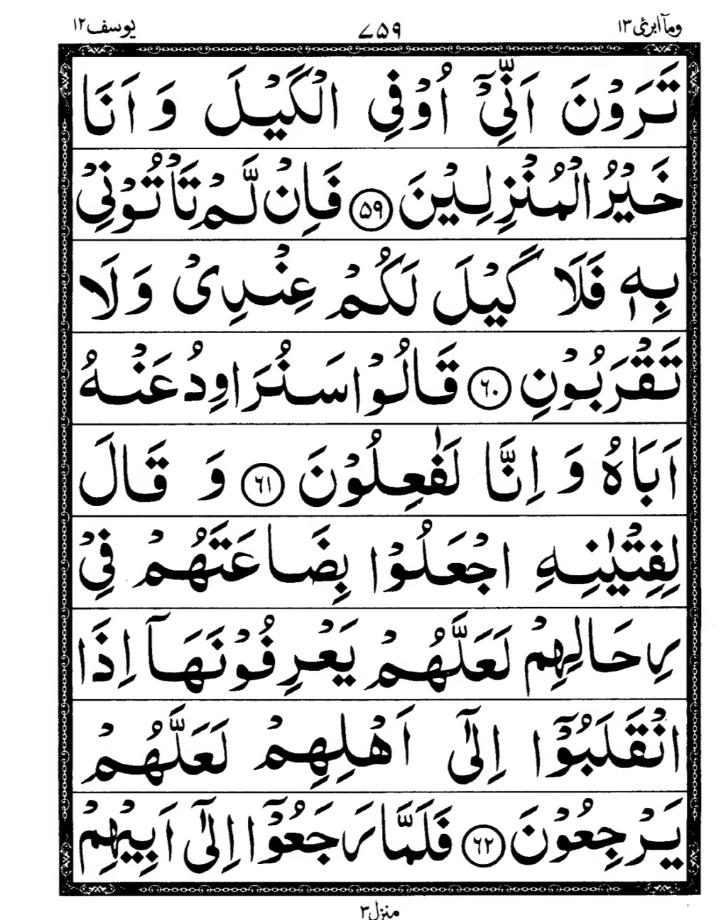 ومآ ابرئ ١٣ ٧٥٩ يوسف ١٢
تَرَوْنَ اَنِّيْۤ اُوْفِي الْكَيْلَ وَ اَنَا
خَيْرُ الْمُنْزِلِيْنَ ۝۵۹ فَاِنْ لَّمْ تَاْتُوْنِيْ
بِهٖ فَلَا كَيْلَ لَكُمْ عِنْدِيْ وَ لَا
تَقْرَبُوْنِ ۝۶۰ قَالُوْا سَنُرَاوِدُ عَنْهُ
اَبَاهُ وَ اِنَّا لَفٰعِلُوْنَ ۝۶۱ وَ قَالَ
لِفِتْيٰنِهِ اجْعَلُوْا بِضَاعَتَهُمْ فِيْ
رِحَالِهِمْ لَعَلَّهُمْ يَعْرِفُوْنَهَاۤ اِذَا
انْقَلَبُوْۤا اِلٰۤى اَهْلِهِمْ لَعَلَّهُمْ
يَرْجِعُوْنَ ۝۶۲ فَلَمَّا رَجَعُوْۤا اِلٰۤى اَبِيْهِمْ
منزل ٣